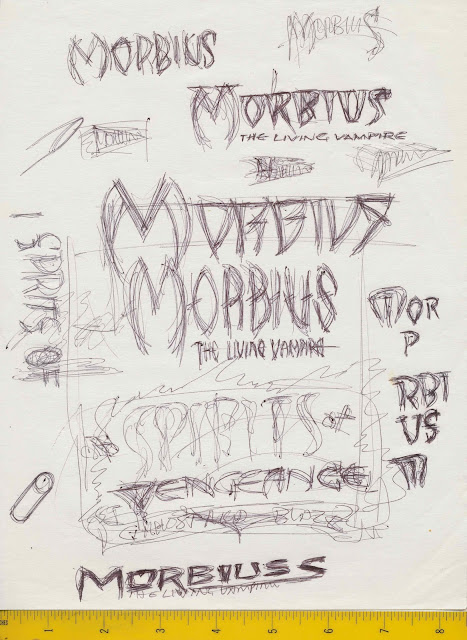 MORBIUS
MORBIUS
MORBIUS
THE LIVING VAMPIRE
MORBIUS
MORBIUS
THE LIVING VAMPIRE
SPIRITS OF
MOR
P
RBI
US
M
SPIRITS
VENGEANCE
MORBIUSS
THE LIVING VAMPIRE
1 2 3 4 5 6 7 8